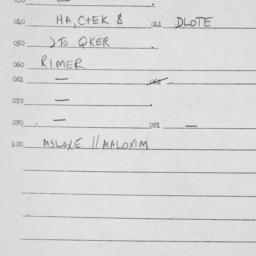 040 HA, CTEK & 041 DLOTE
050 ) TO QKER
060 RIMER
061 — 062
070 —
090 — 091 —
100 M3LOXE // MALOXIM